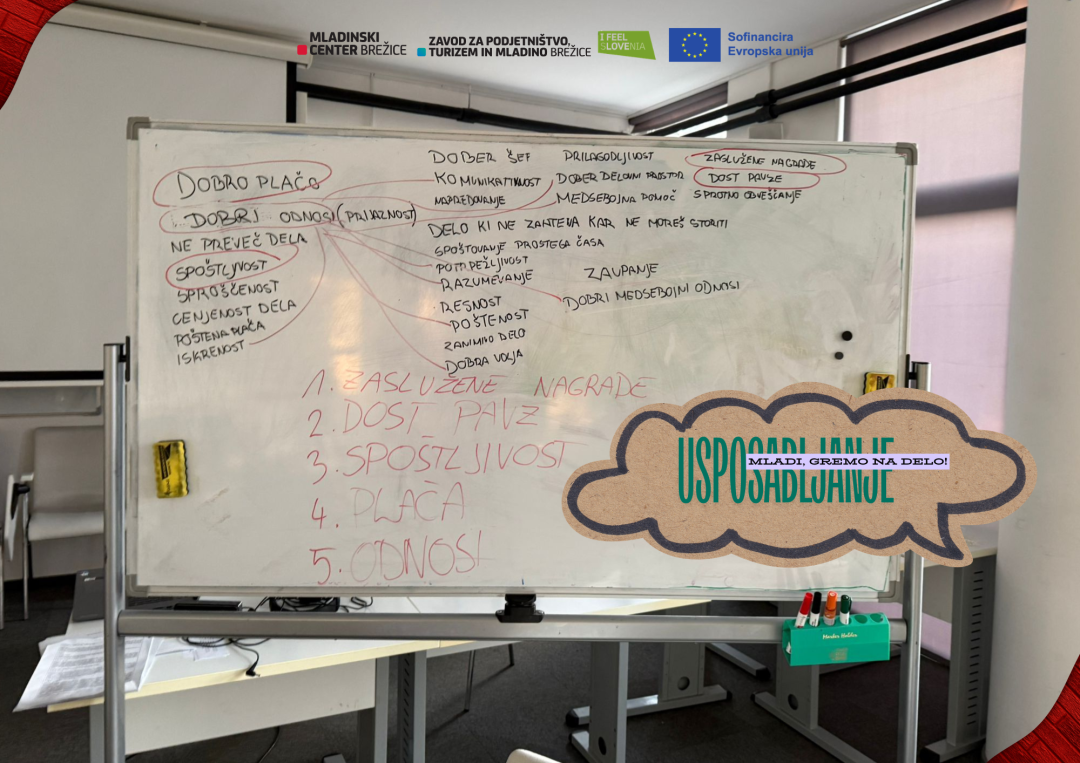 MLADINSKI
CENTER BREŽICE
ZAVOD ZA PODJETNIŠTVO,
TURIZEM IN MLADINO BREŽICE
I FEEL
SLOVENIA
Sofinancira
Evropska unija
DOBRO PLAČO
DOBRI ODNOSI (PRIJAZNOST)
NE PREVEČ DELA
SPOŠTLJIVOST
SPROŠČENOST
CENJENOST DELA
POŠTENA PLAČA
ISKRENOST
DOBER ŠEF
KOMUNIKATIVNOST
NAPREDOVANJE
DELO KI NE ZAHTEVA KAR NE MOREŠ STORITI
SPOŠTOVANJE PROSTEGA ČASA
POTRPEŽLJIVOST
RAZUMEVANJE
RESNOST
POŠTENOST
ZANIMIVO DELO
DOBRA VOLJA
PRILAGODLJIVOST
DOBER DELOVNI PROSTOR
MEDSEBOJNA POMOČ
ZAUPANJE
DOBRI MEDSEBOJNI ODNOSI
ZASLUŽENE NAGRADE
DOST PAVZE
SPROTNO OBVEŠČANJE
1. ZASLUŽENE NAGRADE
2. DOST PAVZ
3. SPOŠTLJIVOST
4. PLAČA
5. ODNOSI
USPOSABLJANJE
MLADI, GREMO NA DELO!
Marker Holder